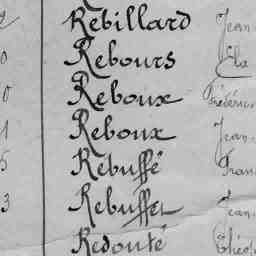 Rebillard Jean
0 Rebours
0 Reboux Frédéric
1 Reboux Jean
5 Rébuffé Fran
3 Rebuffet Jean
Redouté Théo